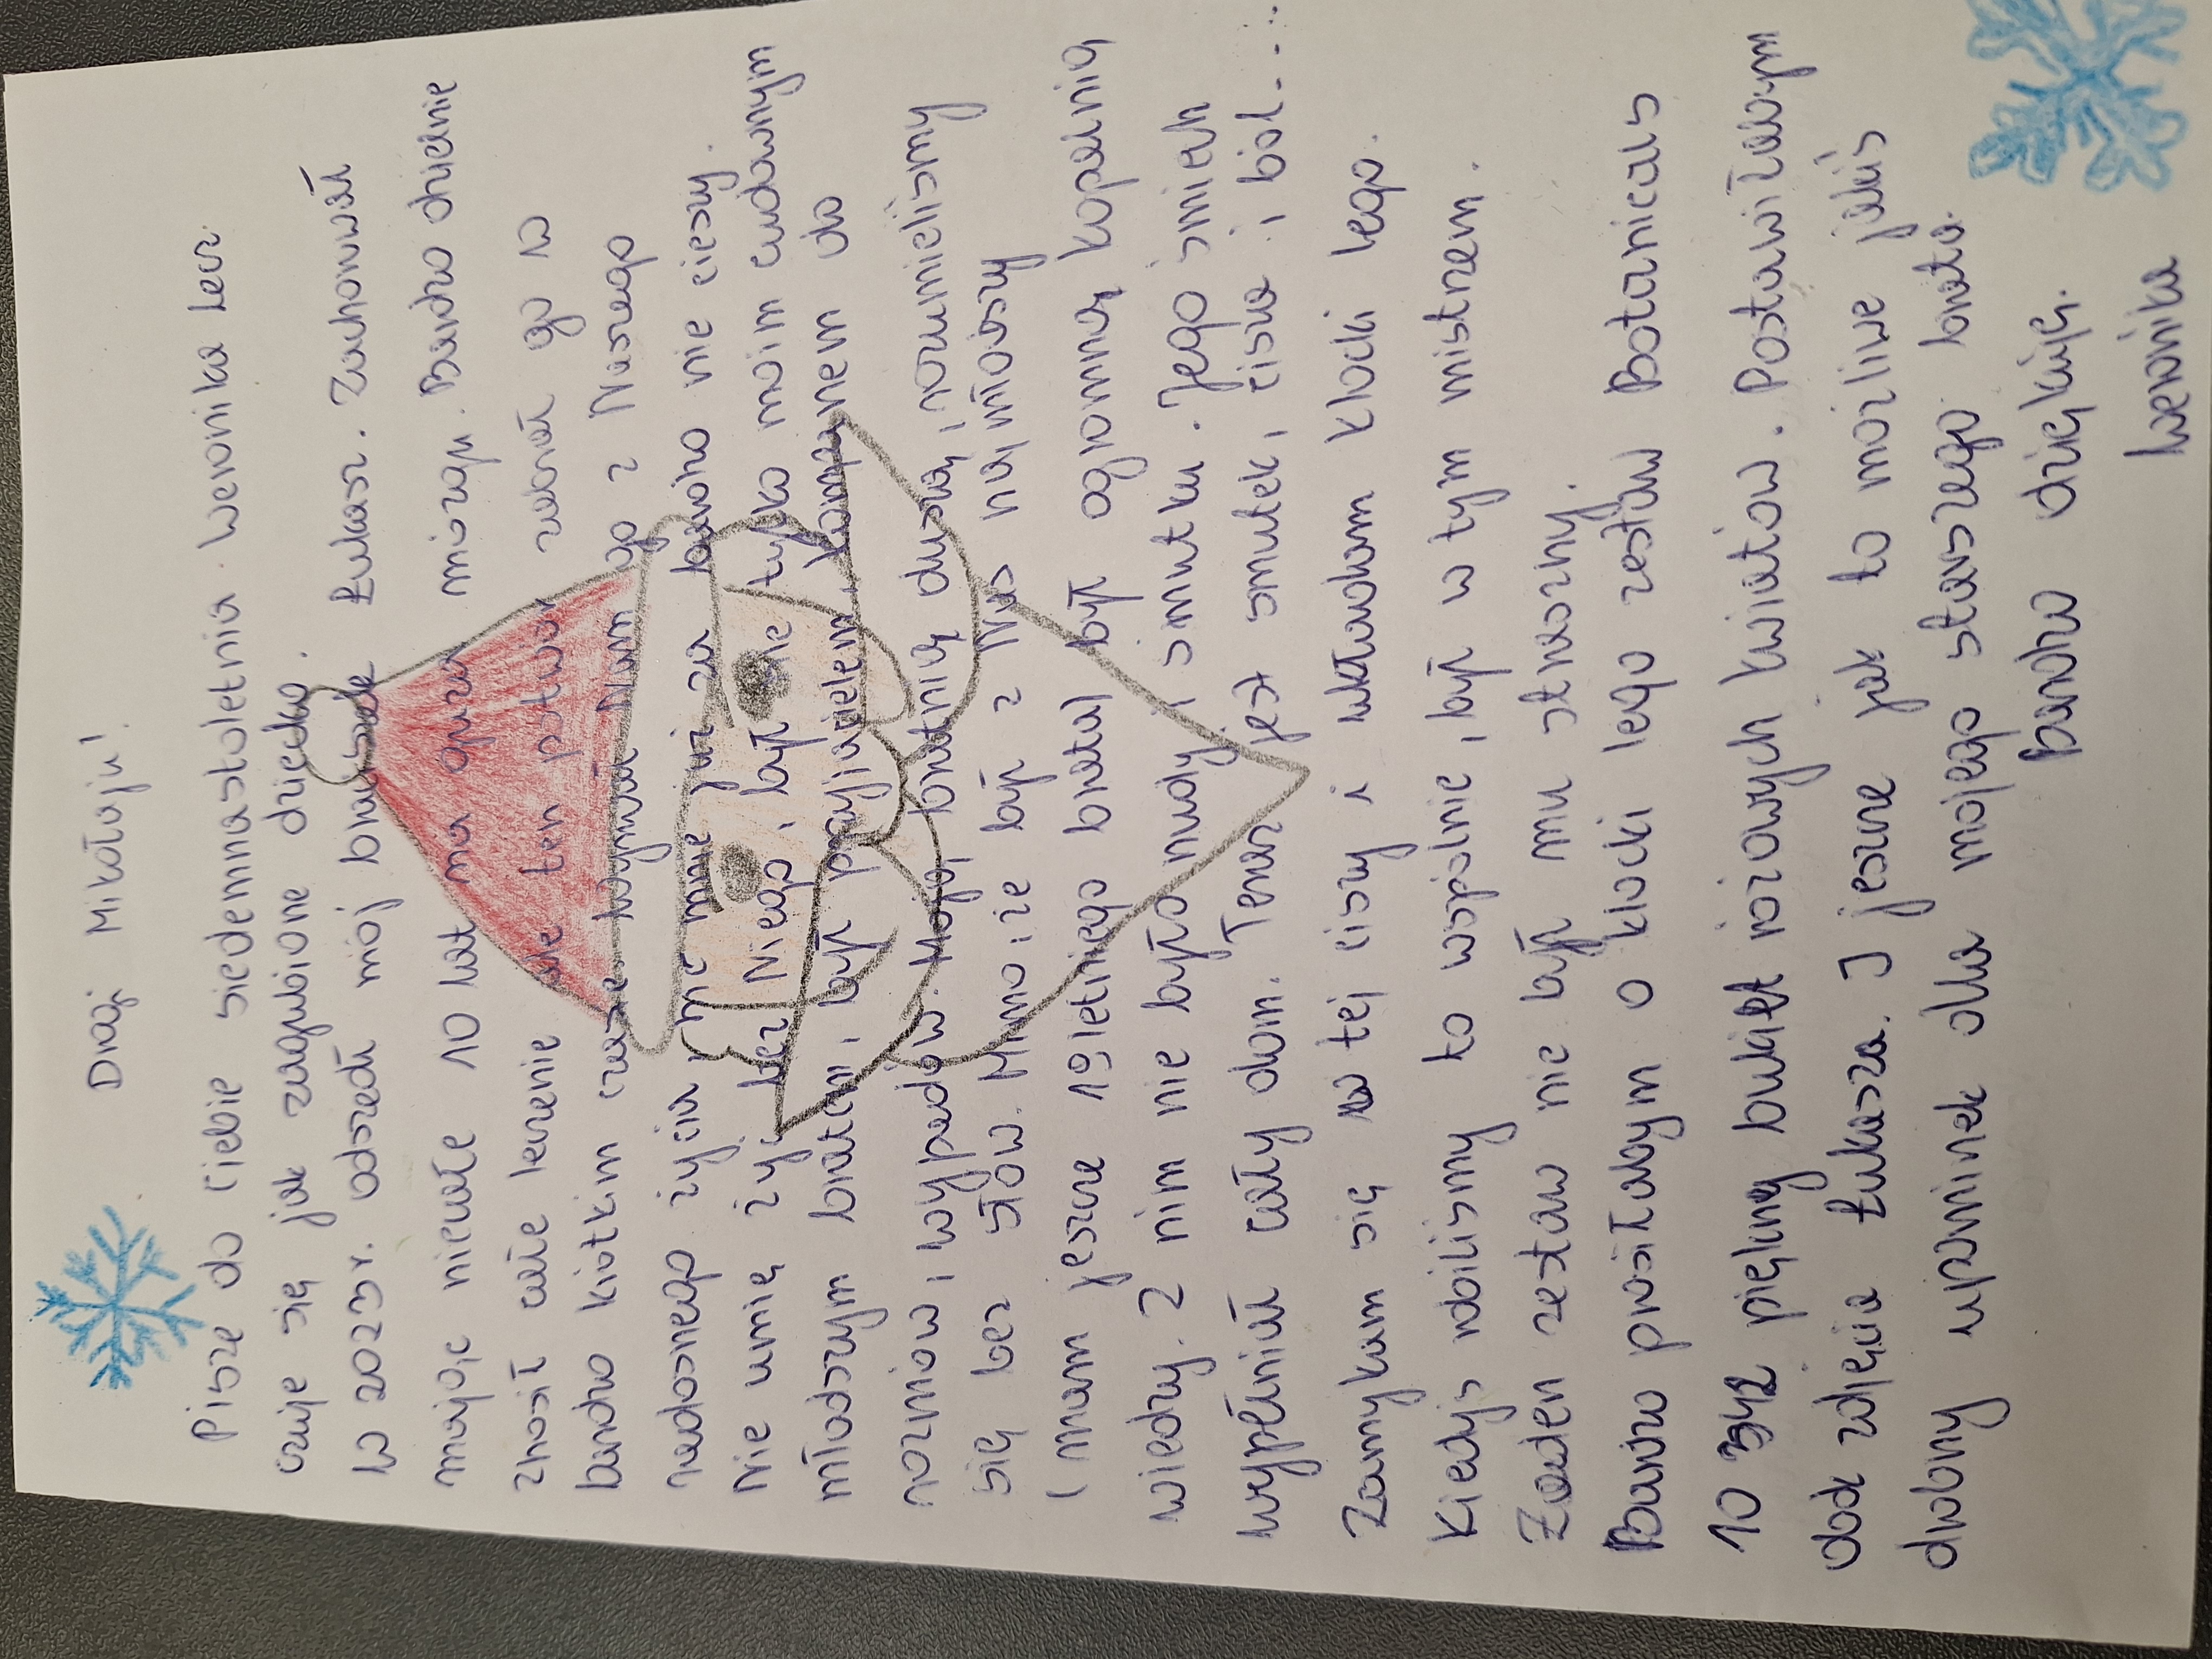 Drogi Mikołaju!
Pisze do ciebie siedemnastoletnia Weronika lecz
czuje się jak zagubione dziecko.
W 2023r. odszedł mój braciszek Łukasz. Zachorował
mając niecałe 10 lat na guza mózgu. Bardzo dzielnie
znosił całe leczenie ale ten potwór zabrał go w
bardzo krótkim czasie. Wyrwał Nam go z Naszego
radosnego życia, nie mnie już za bardzo nie cieszy.
Nie umię żyć bez Niego, był nie tylko moim cudownym
młodszym bratem, był przyjacielem, kompanem do
rozmów, wypadów. Moją bratnią duszą, rozumieliśmy
się bez słów. Mimo, że był z Nas najmłodszy
(mam jeszcze 19letniego brata) był ogromną kopalnią
wiedzy. Z nim nie było nudy i smutku. Jego śmiech
wypełniał cały dom. Teraz jest smutek, cisza i ból....
Zamykam się w tej ciszy i układam klocki lego.
Kiedyś robiliśmy to wspólnie, był w tym mistrzem.
Żaden zestaw nie był mu straszny.
Bardzo prosiłabym o klocki lego zestaw Botanicals
10 342 piękny bukiet różowych kwiatów. Postawiłabym
obok zdjęcia Łukasza. I jeszcze jak to możliwe jakiś
drobny upominek dla mojego starszego brata.
Bardzo dziękuję.
Weronika